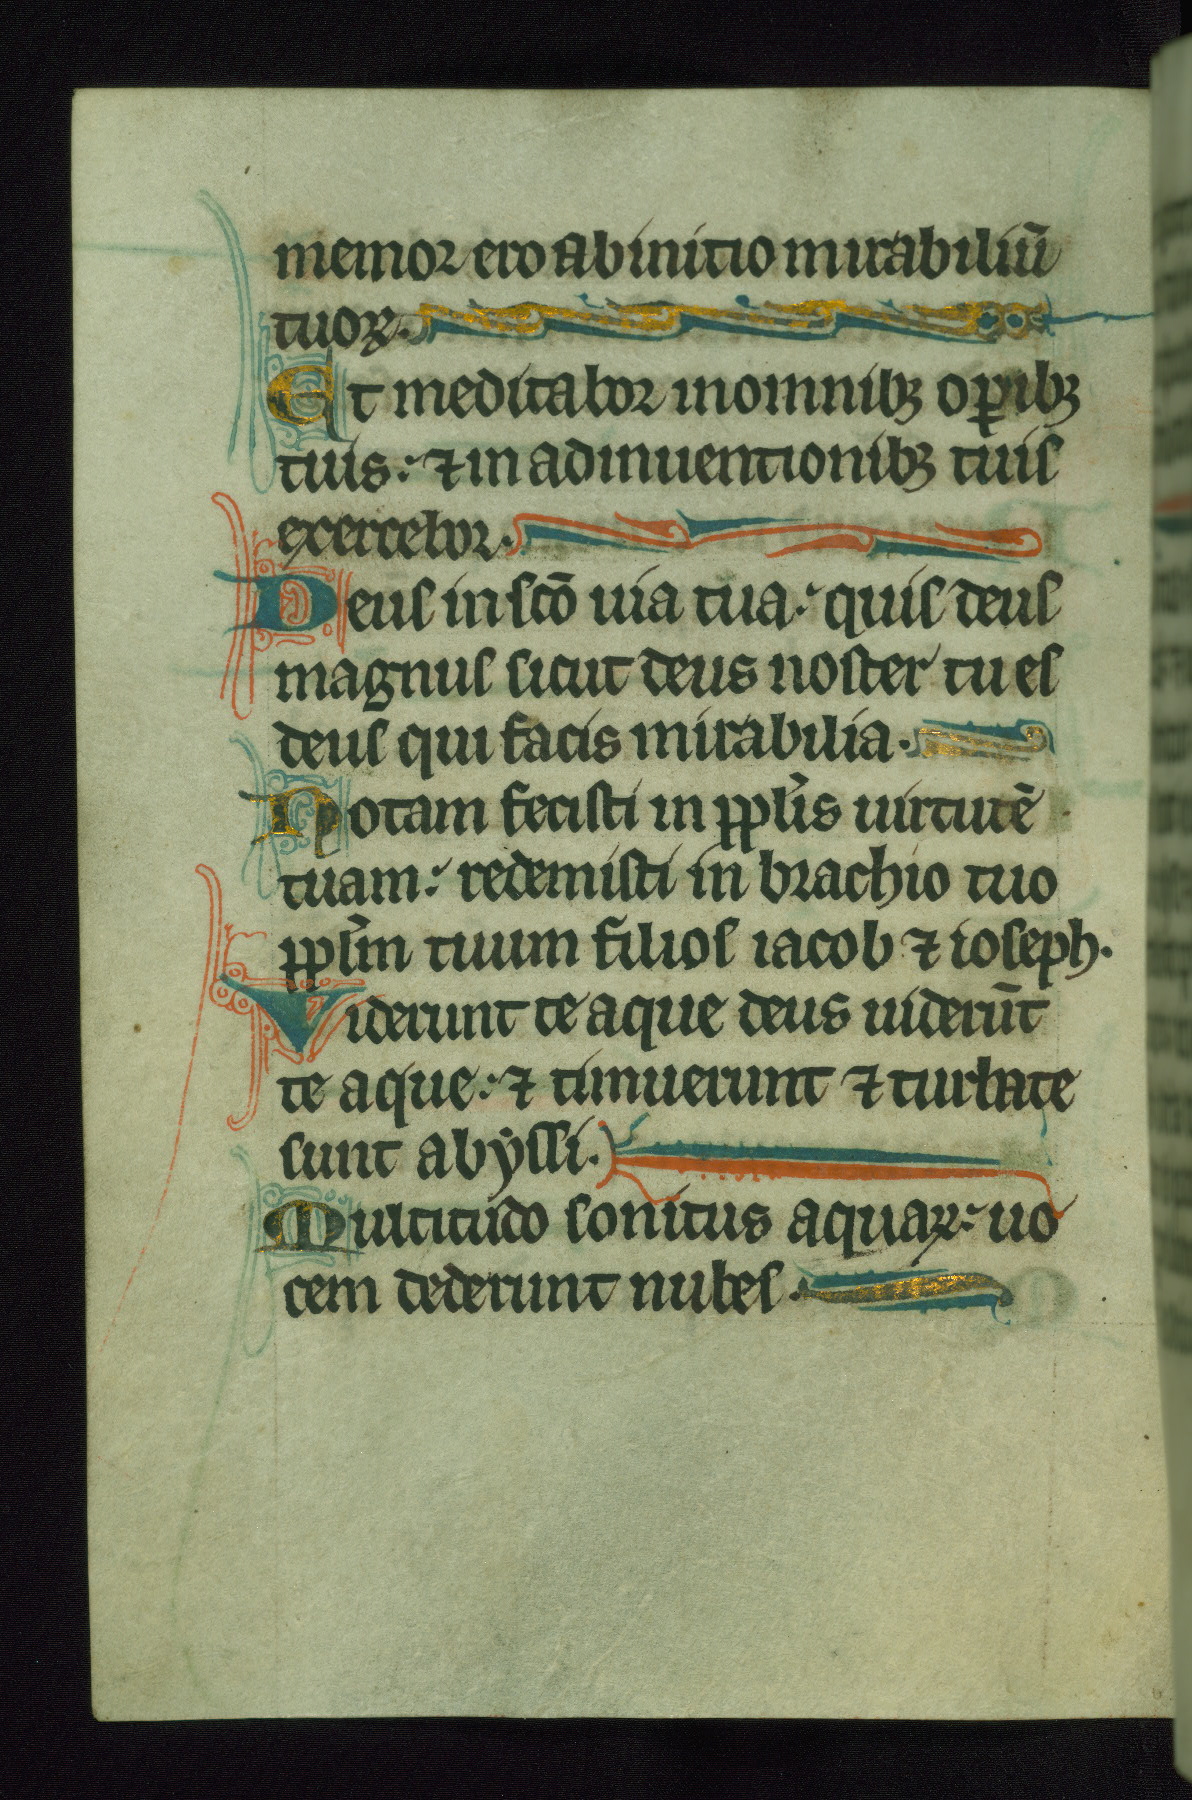 memor ero ab inicio mirabiliū
tuoꝝ.
Et meditabor in omnibꝫ oꝑibꝫ
tuis: ⁊ in adinuentionibꝫ tuis
exercebor.
Deus in sc̄o uia tua: quis deus
magnus sicut deus noster tu es
deus qui facis mirabilia.
Notam fecisti in ppl̓is uirtutē
tuam: redemisti in brachio tuo
ppl̓m tuum filios iacob ⁊ ioseph.
Viderunt te aque deus uiderūt
te aque: ⁊ timuerunt ⁊ turbate
sunt abẏssi.
Multitudo sonitus aquaꝝ: uo
cem dederunt nubes.